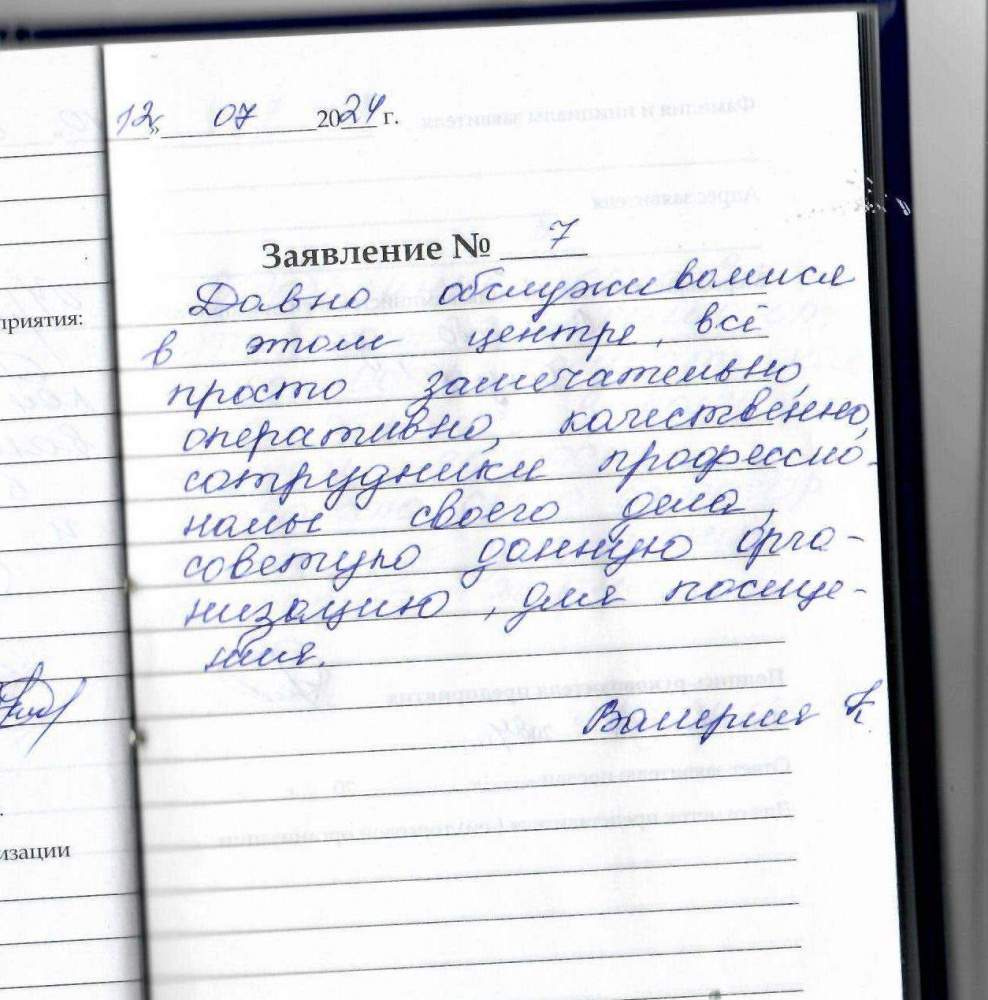 12 " 07 2024 г.
Заявление № 7
Давно обслуживаемся
в этом центре, всё
просто замечательно,
оперативно, качественно,
сотрудники профессио-
налы своего дела,
советую данную орга-
низацию, для посеще-
ния.
Валерия К
приятия:
изации